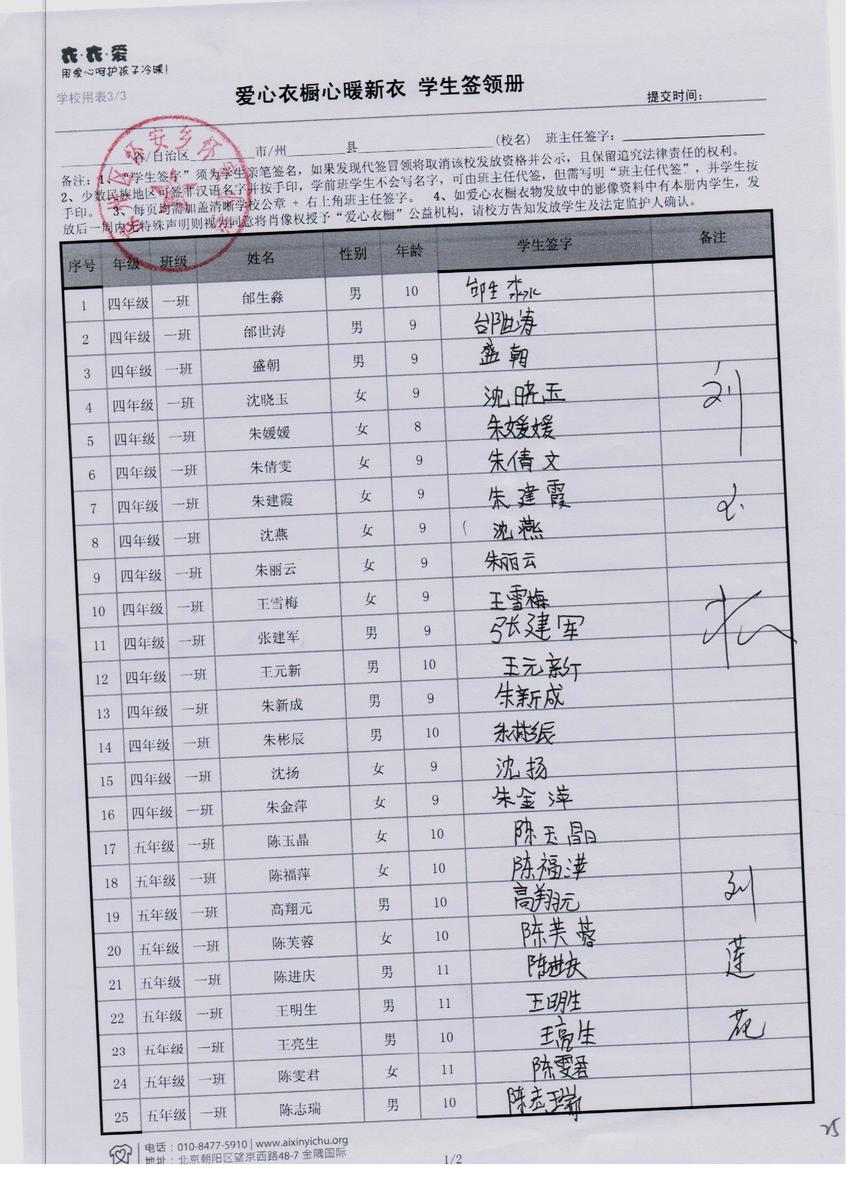 衣·衣·爱
用爱心呵护孩子冷暖!
学校用表3/3
爱心衣橱心暖新衣 学生签领册
提交时间:
省/自治区 市/州 县 (校名) 班主任签字:
备注: 1、"学生签名" 须为学生亲笔签名,如果发现代签冒领将取消该校发放资格并公示,且保留追究法律责任的权利。
2、少数民族地区可签非汉语名字并按手印,学前班学生不会写名字,可由班主任代签,但需写明"班主任代签",并学生按
手印。 3、每页均需加盖清晰学校公章 + 右上角班主任签字。 4、如爱心衣橱衣物发放中的影像资料中有本册内学生,发
放后一周内无特殊声明则视为同意将肖像权授予"爱心衣橱"公益机构,请校方告知发放学生及法定监护人确认。
序号 年级 班级 姓名 性别 年龄 学生签字 备注
1 四年级 一班 邰生淼 男 10 邰生淼
2 四年级 一班 邰世涛 男 9 邰世涛
3 四年级 一班 盛朝 男 9 盛朝
4 四年级 一班 沈晓玉 女 9 沈晓玉 刘
5 四年级 一班 朱媛媛 女 8 朱媛媛
6 四年级 一班 朱倩雯 女 9 朱倩文
7 四年级 一班 朱建霞 女 9 朱建霞
8 四年级 一班 沈燕 女 9 沈燕
9 四年级 一班 朱丽云 女 9 朱丽云
10 四年级 一班 王雪梅 女 9 王雪梅
11 四年级 一班 张建军 男 9 张建军
12 四年级 一班 王元新 男 10 王元新
13 四年级 一班 朱新成 男 9 朱新成
14 四年级 一班 朱彬辰 男 10 朱彬辰
15 四年级 一班 沈扬 女 9 沈扬
16 四年级 一班 朱金萍 女 9 朱金萍
17 五年级 一班 陈玉晶 女 10 陈玉晶
18 五年级 一班 陈福萍 女 10 陈福萍
19 五年级 一班 高翔元 男 10 高翔元 刘
20 五年级 一班 陈芙蓉 女 10 陈芙蓉
21 五年级 一班 陈进庆 男 11 陈进庆 莲
22 五年级 一班 王明生 男 11 王明生
23 五年级 一班 王亮生 男 10 王亮生 花
24 五年级 一班 陈雯君 女 11 陈雯君
25 五年级 一班 陈志瑞 男 10 陈志瑞
25
电话:010-8477-5910 | www.aixinyichu.org
地址:北京朝阳区望京西路48-7 金隅国际
1/2